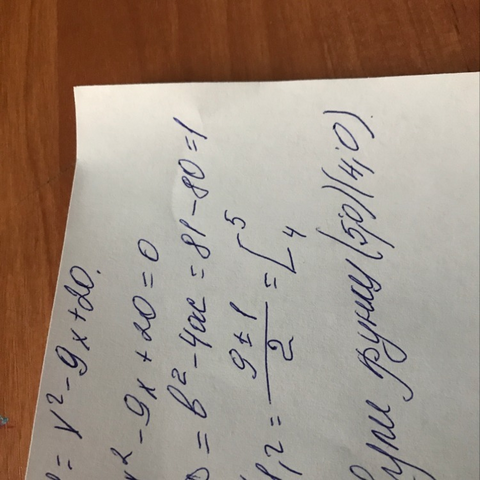 = x² - 9x + 20.
x² - 9x + 20 = 0
D = b² - 4ac = 81 - 80 = 1
1,2 = 9 ± 1 / 2 = [ 5 4
функц (5;0) (4;0).